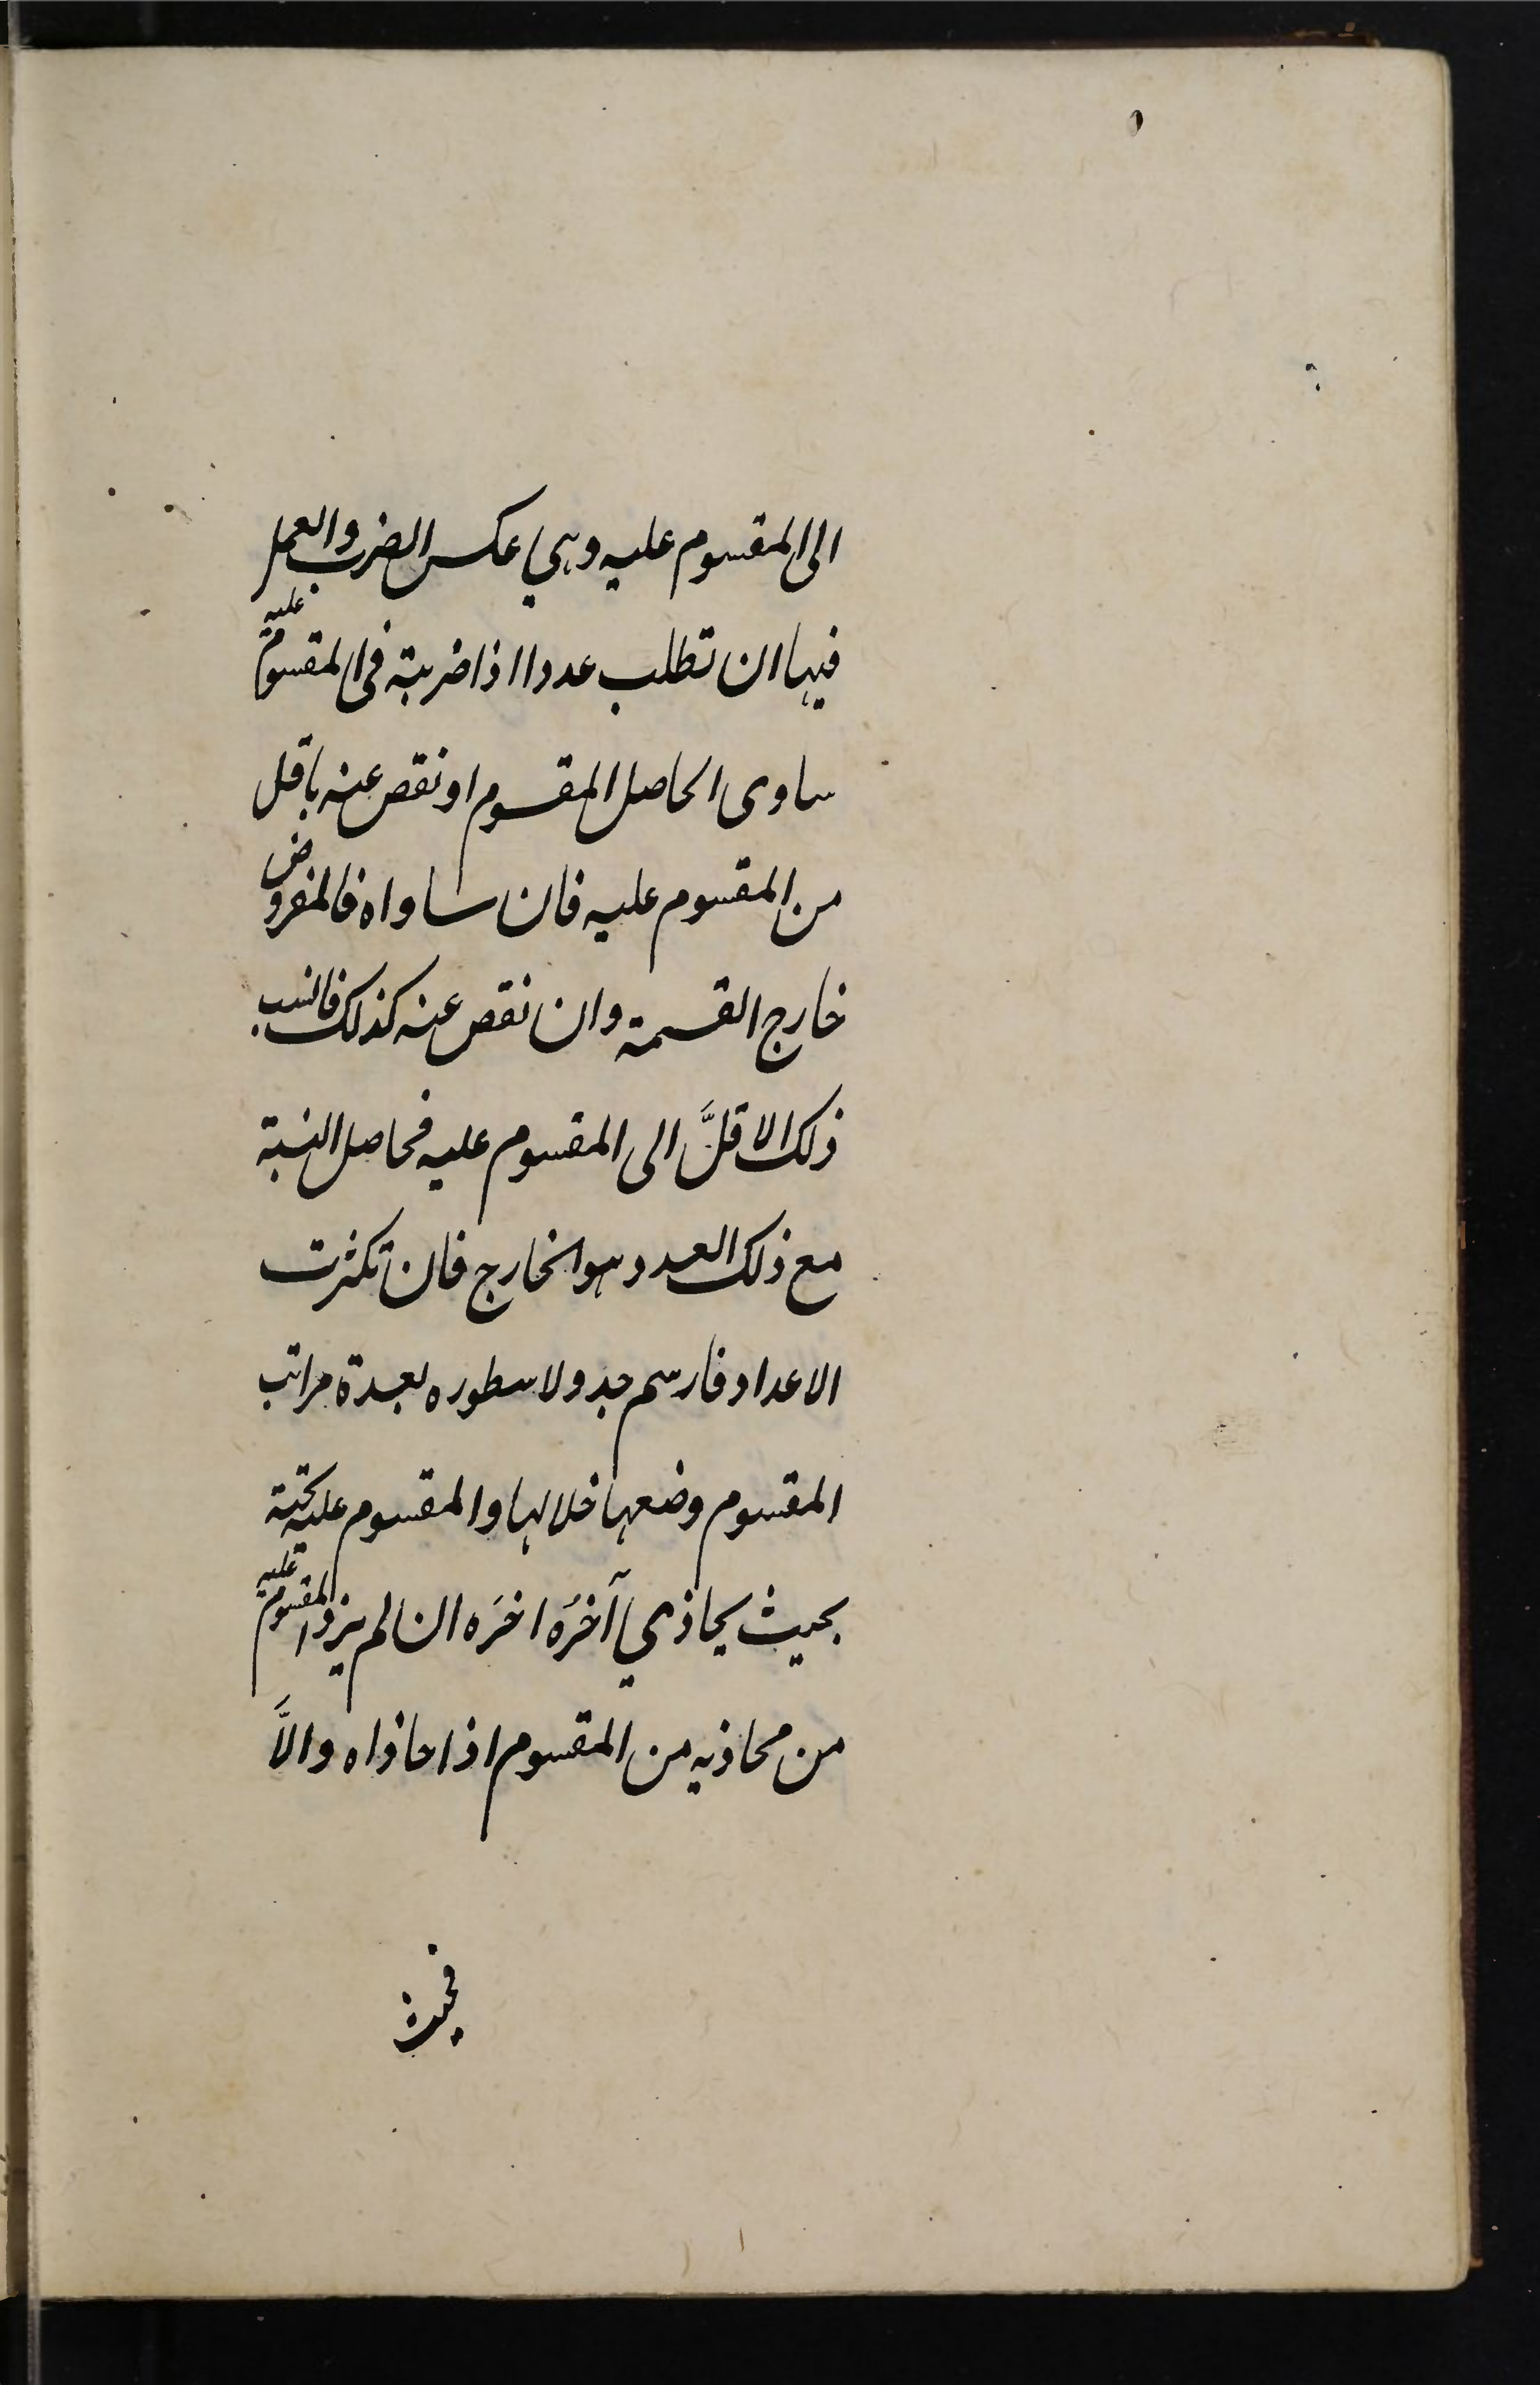 الى المقسوم عليه وهي عكس الضرب والعمل
فيها ان تطلب عددا اذا ضربته فى المقسوم عليه
ساوى الحاصل المقسوم او نقص عنه باقل
من المقسوم عليه فان ساواه فالمفروض
خارج القسمة وان نقص عنه كذلك فانسب
ذلك الاقلَّ الى المقسوم عليه فحاصل النسبة
مع ذلك العدد هو الخارج فان تكثرت
الاعداد فارسم جدولا سطوره بعدة مراتب
المقسوم وضعها خلالها والمقسوم عليه تحته
بحيث يحاذي آخرَه اخرَه ان لم يزد المقسوم عليه
من محاذيه من المقسوم اذا حاذاه والاَّ
فحيث